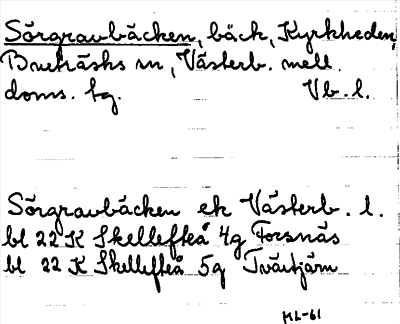 Sörgravbäcken, bäck, Kyrkheden,
Burträsks sn, Västerb. mell.
doms. tg. Vb. l.
Sörgravbäcken ek Västerb. l.
bl 22 K Skellefteå 4g Forsnäs
bl 22 K Skellefteå 5g Tvärtjärn
ML-61